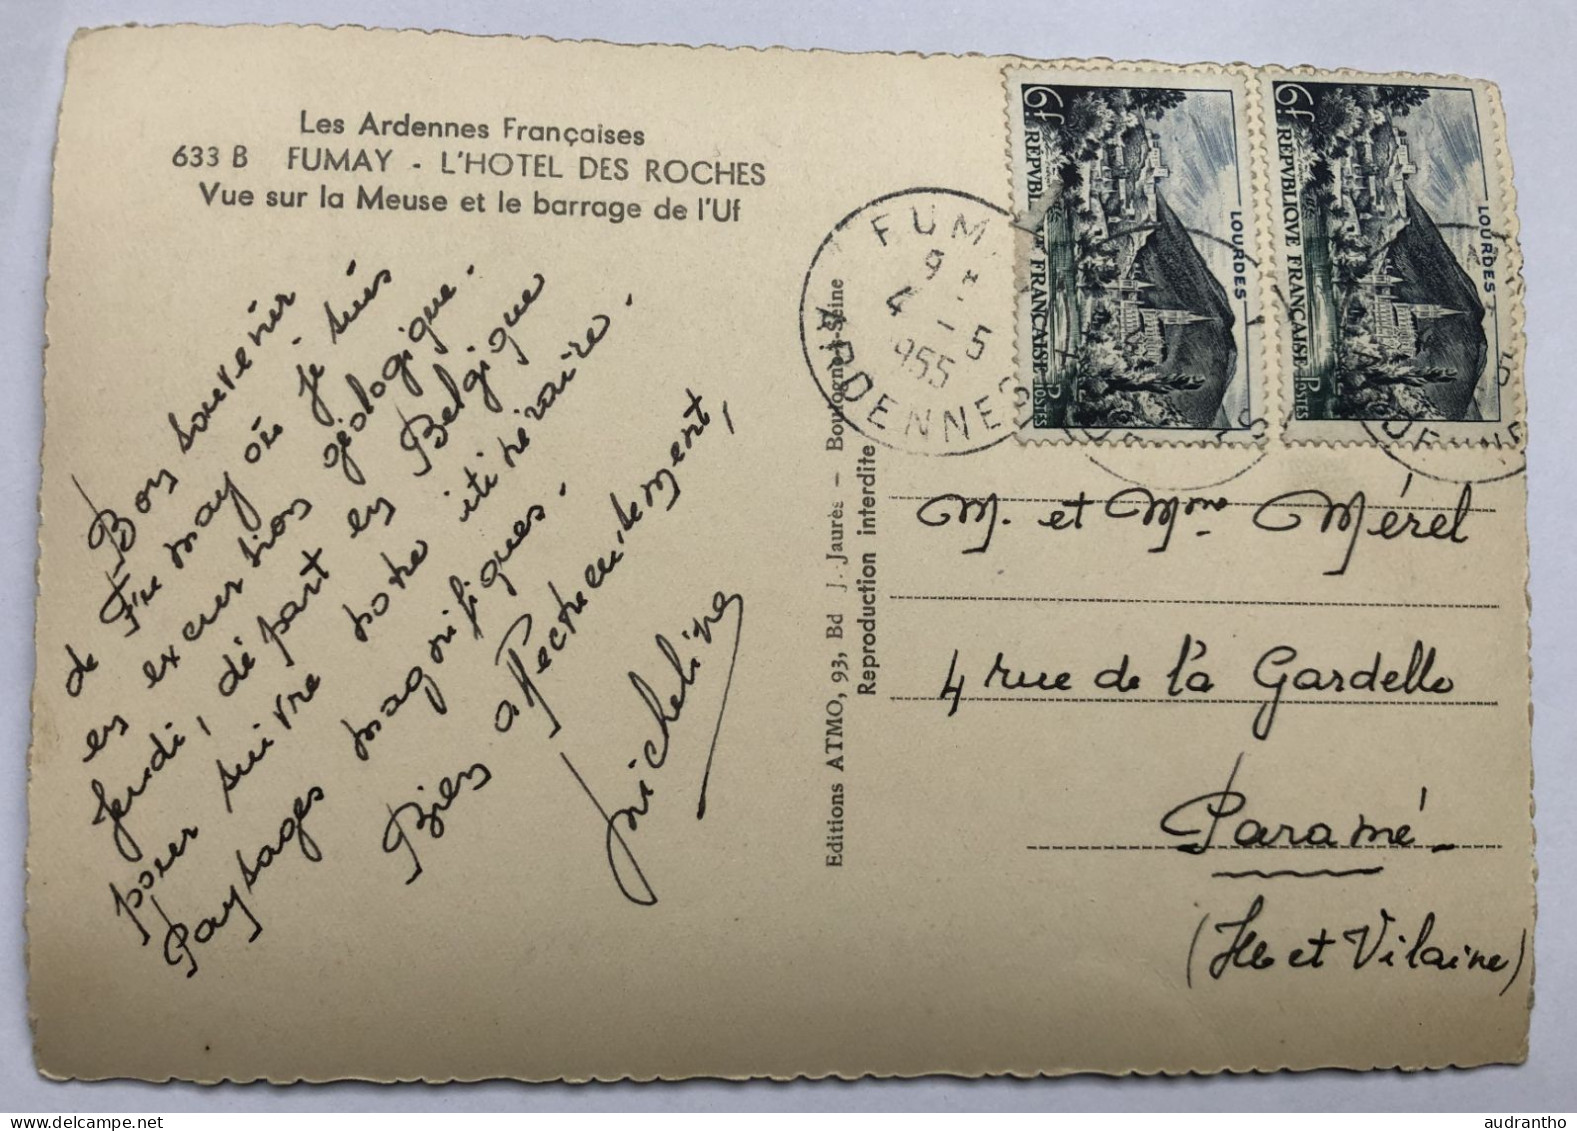 Les Ardennes Françaises
633 B FUMAY - L'HOTEL DES ROCHES
Vue sur la Meuse et le barrage de l'Uf
Bon souvenir
de Fumay où je suis
en excursion géologique.
Jeudi, départ en Belgique
pour suivre notre itinéraire.
Paysages magnifiques.
Bien affectueusement,
Micheline
Editions ATMO, 93, Bd J.-Jaurès - Boulogne-s-Seine
Reproduction interdite
FUM
9 H
4 - 5
1955
ARDENNES
6f
REPVBLIQVE FRANÇAISE
POSTES
LOURDES
6f
REPVBLIQVE FRANÇAISE
POSTES
LOURDES
M. et Mme Mérel
4 rue de la Gardelle
Paramé
(Ille et Vilaine)
audrantho